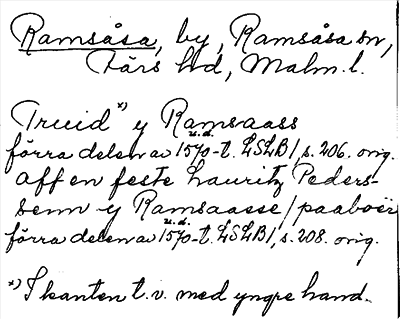 Ramsåsa, by, Ramsåsa sn,
Färs hd, Malm. l.
Truid *) y Ramsaass
förra delen av 1570-t. u.d. LSLB 1, s. 206. orig.
aff en feste Lauritz Peders-
senn y Ramsaasse / paaboer
förra delen av 1570-t. u.d. LSLB 1, s. 208. orig.
*) I kanten t.v. med yngre hand.